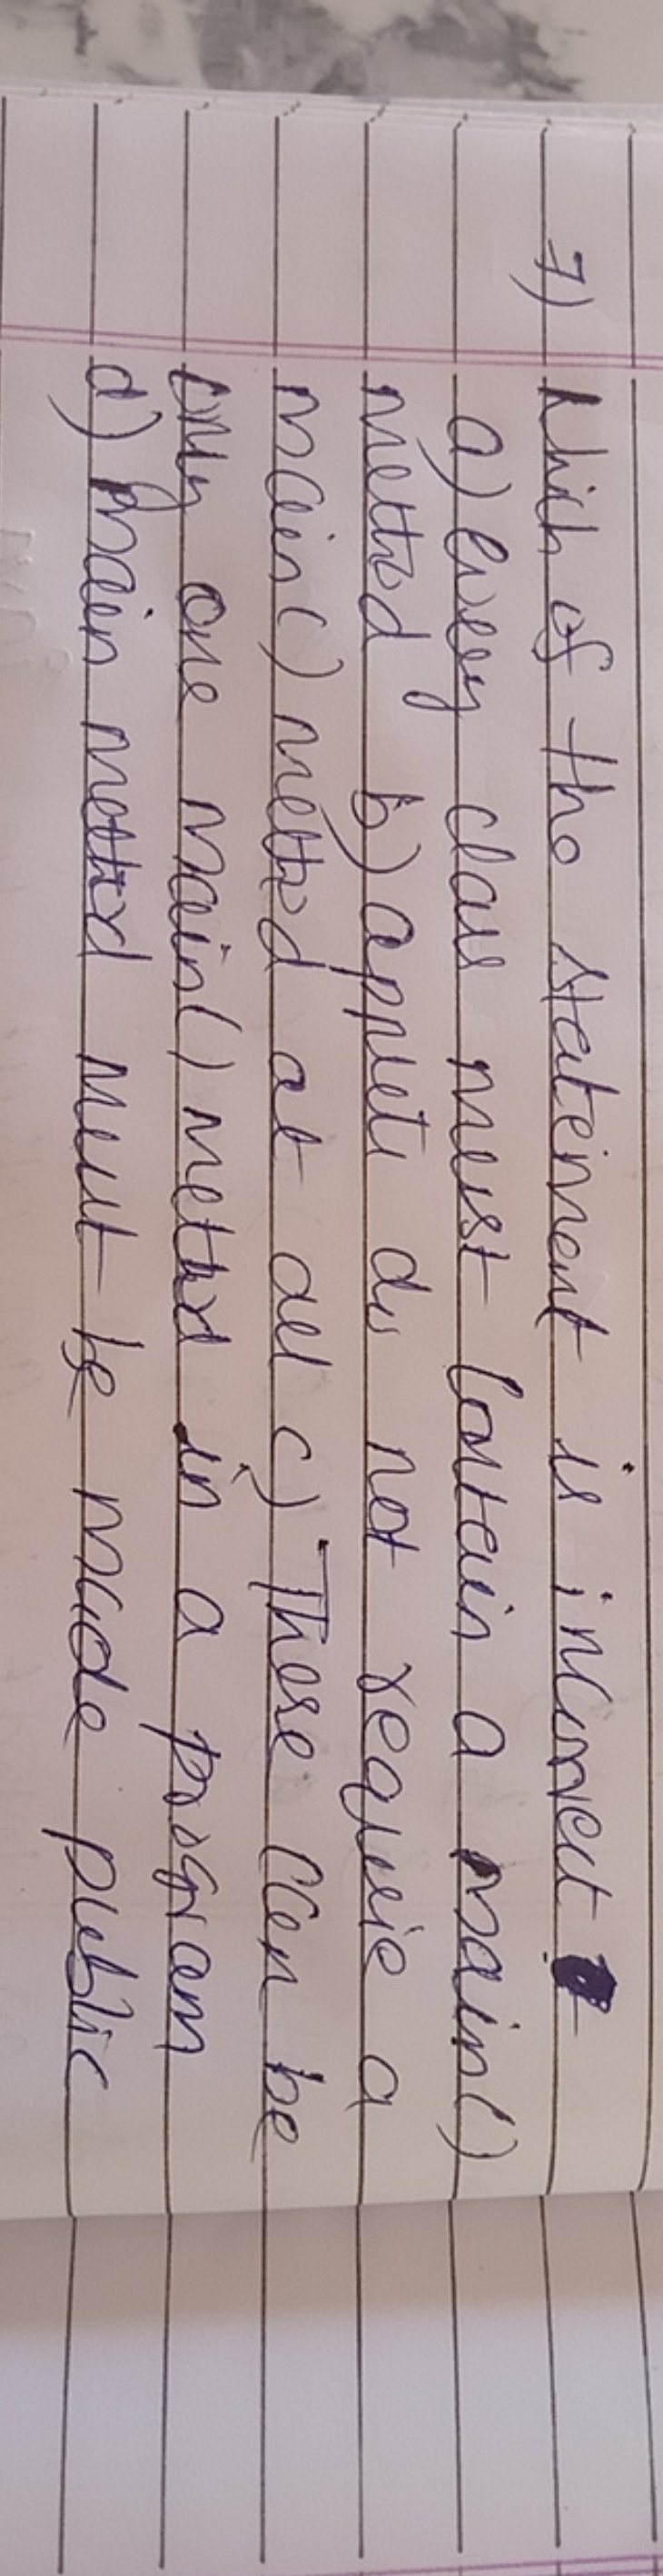 7) Which of the statement is incorrect
a) every class must contain a main()
method b) applets do not require a
main() method at all c) There can be
only one main() method in a program
d) main method must be made public